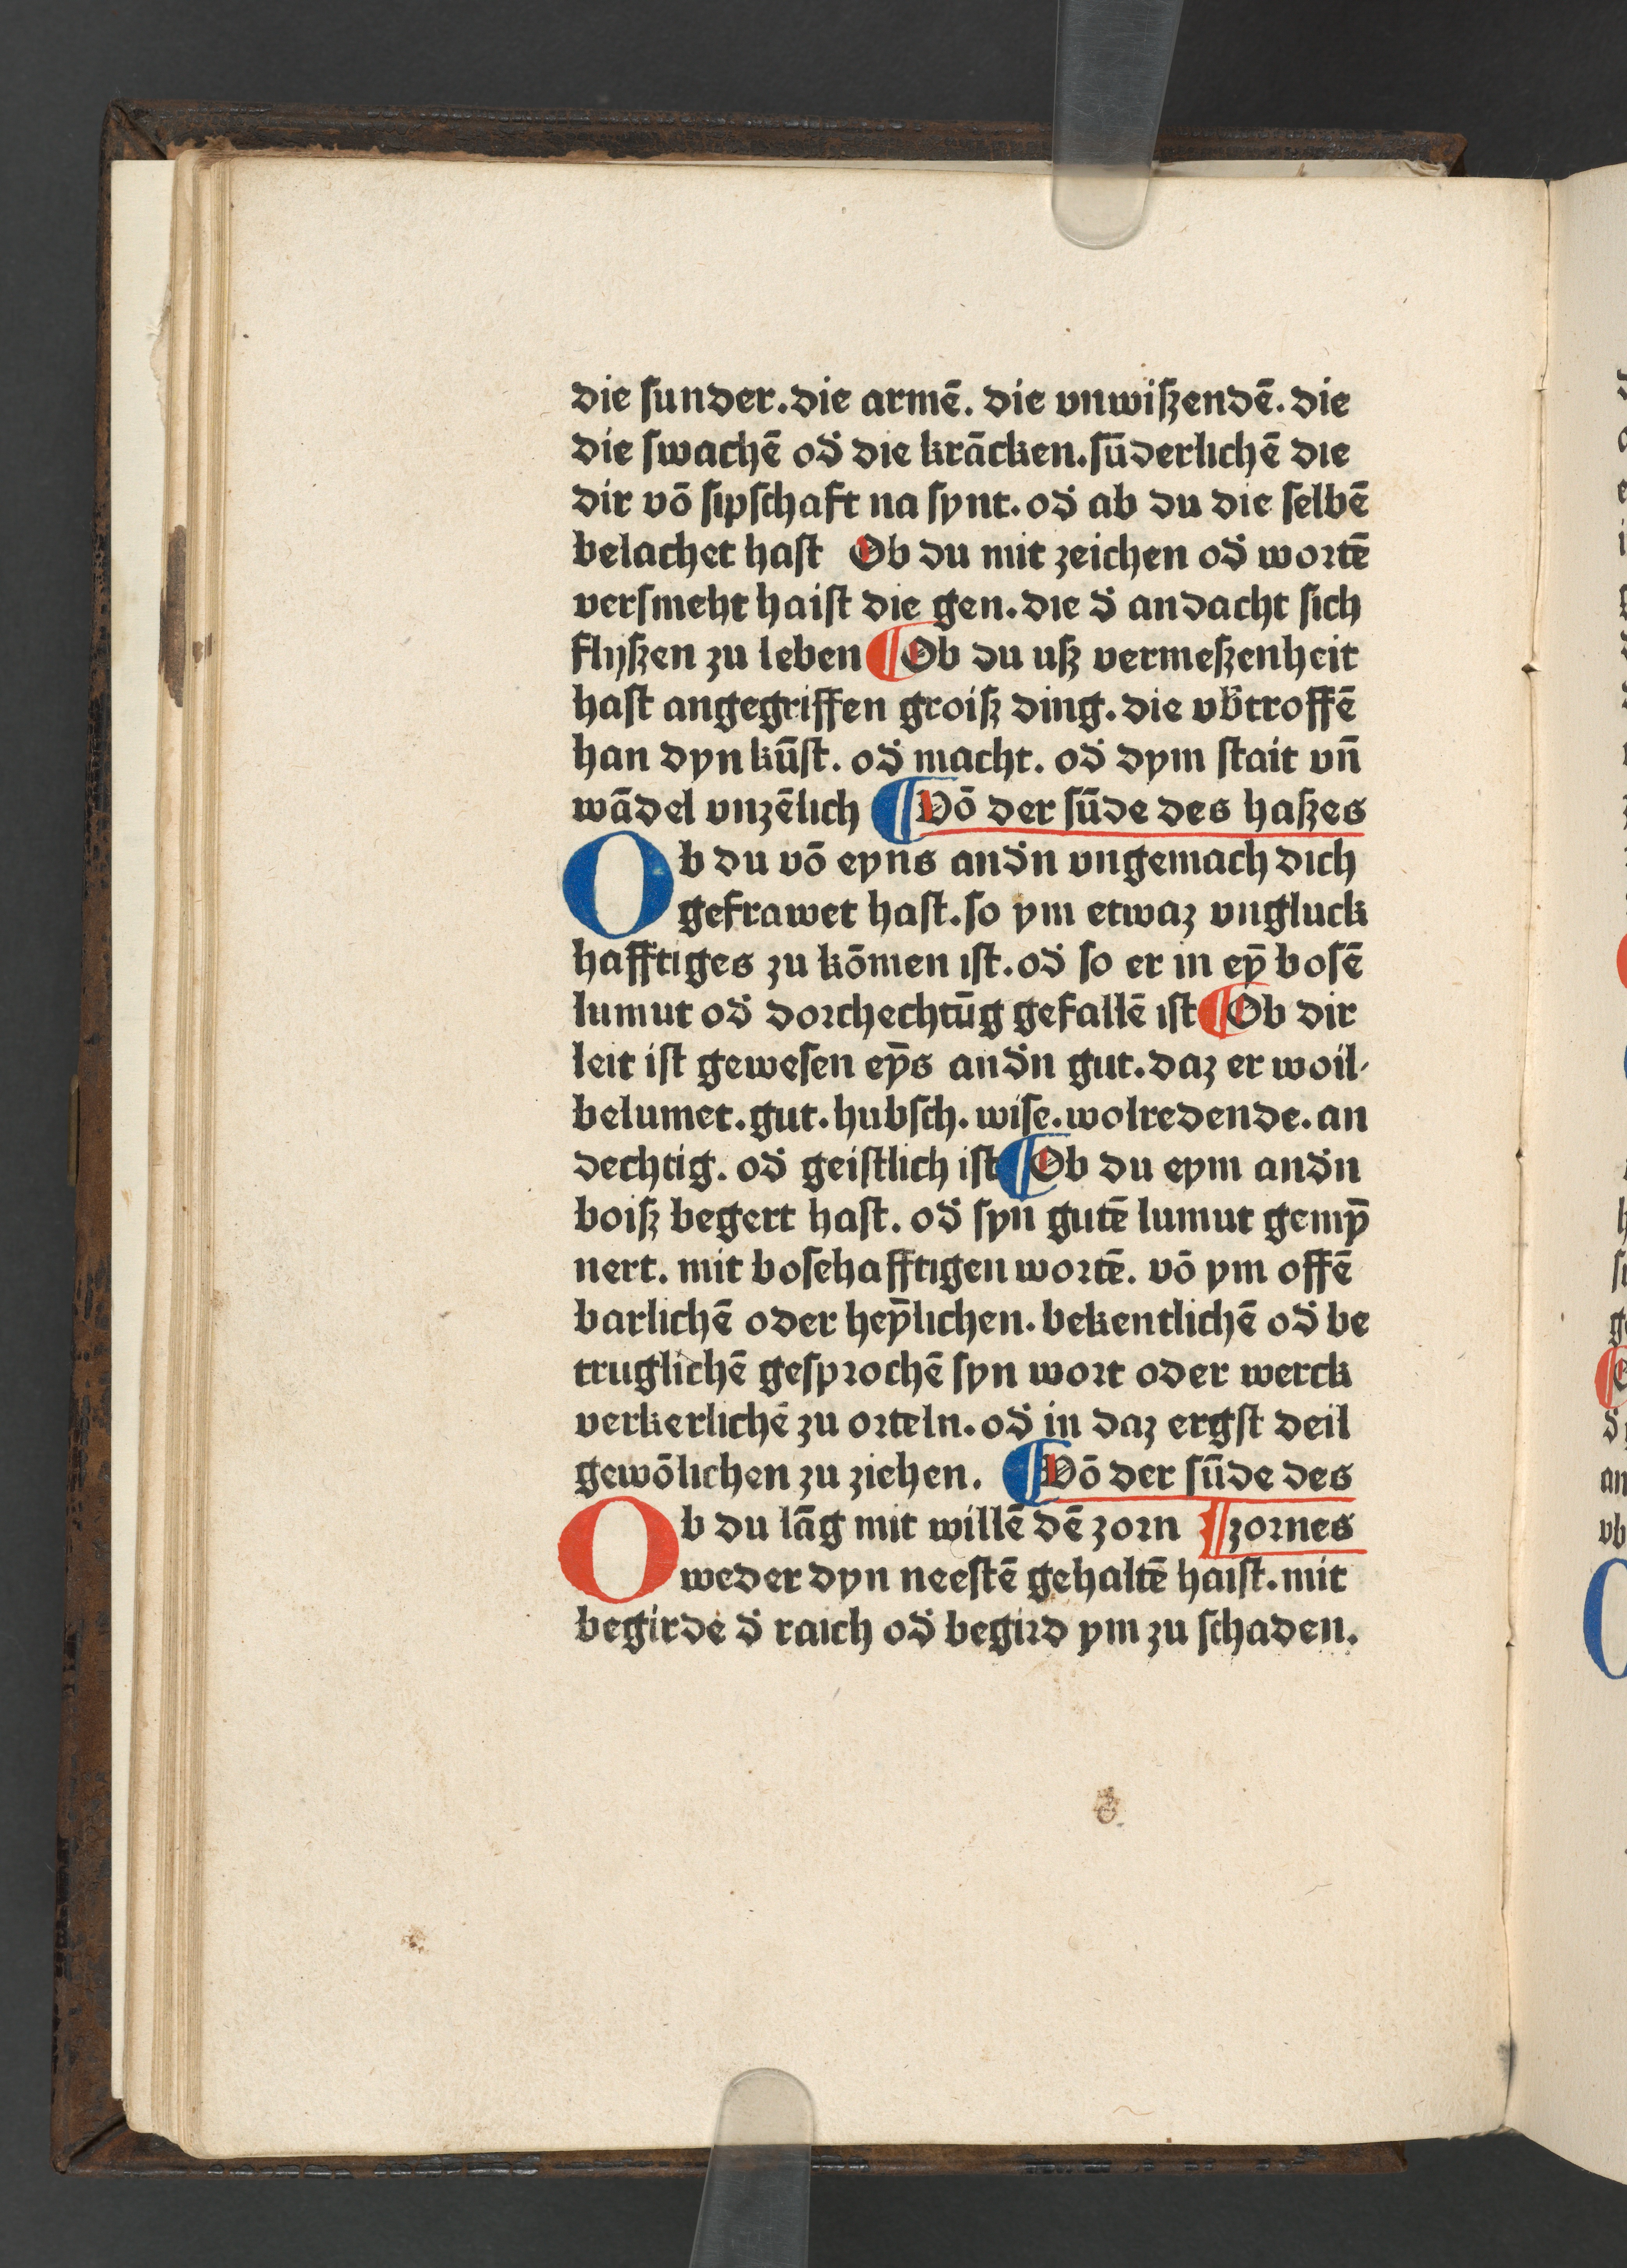 die ſunder. die armē. die vnwiſzendē. die
die ſwachē od̛ die krācken. ſūderlichē die
dir vō ſipſchaft na ſynt. od̛ ab du die ſelbē
belachet haſt Ob du mit zeichen od̛ wortē
verſmeht haiſt die gen. die d̛ andacht ſich
flijſzen zu leben ¶ Ob du uſz vermeſzenheit
haſt angegriffen groiſz ding. die vb̛troffē
han dyn kūſt. od̛ macht. od̛ dym ſtait vn̄
wādel vnzēlich ¶ Vō der ſūde des haſzes
Ob du vō eyns and̛n vngemach dich
gefrawet haſt. ſo ym etwaz vngluck
hafftiges zu kōmen iſt. od̛ ſo er in eȳ boſē
lumut od̛ dorchechtūg gefallē iſt ¶ Ob dir
leit iſt geweſen eȳs and̛n gut. daz er woil⸗
belumet. gut. hubſch. wiſe. wolredende. an
dechtig. od̛ geiſtlich iſt ¶ Ob du eym and̛n
boiſz begert haſt. od̛ ſyn gutē lumut gemȳ
nert. mit boſehafftigen wortē. vō ym offē
barlichē oder heȳlichen. bekentlichē od̛ be
truglichē geſprochē ſyn wort oder werck
verkerlichē zu orteln. od̛ in daz ergſt deil
gewōlichen zu ziehen. ¶ Vō der ſūde des
Ob du lāg mit willē dē zorn ¶ zornes
weder dyn neeſtē gehaltē haiſt. mit
begirde d̛ raich od̛ begird ym zu ſchaden.